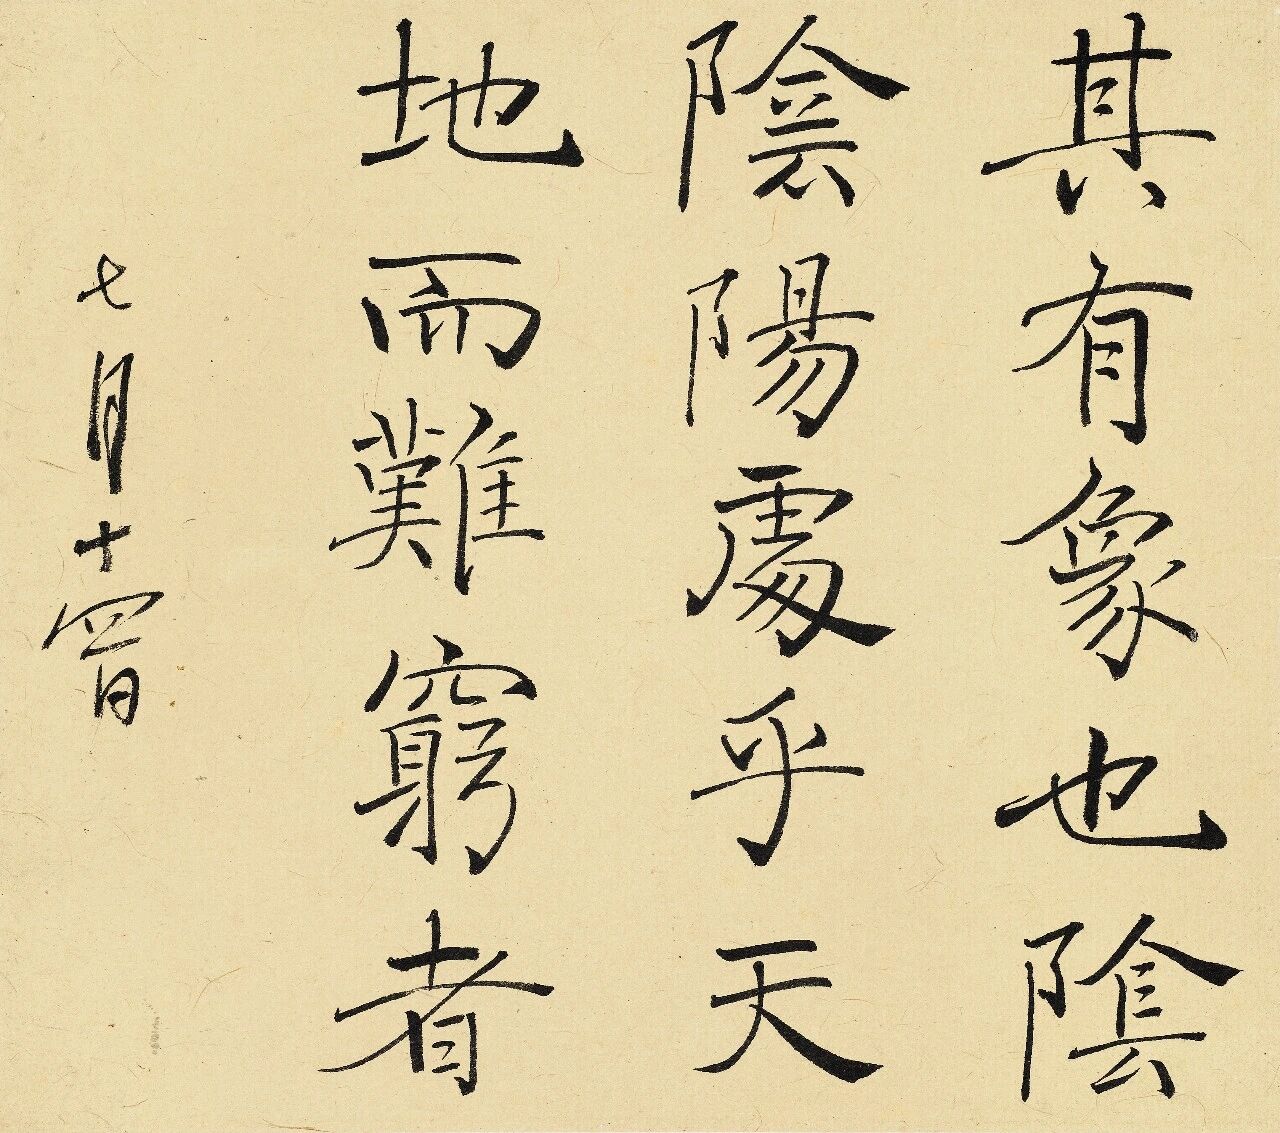 其有象也陰
陰陽處乎天
地而難窮者
七月十四日